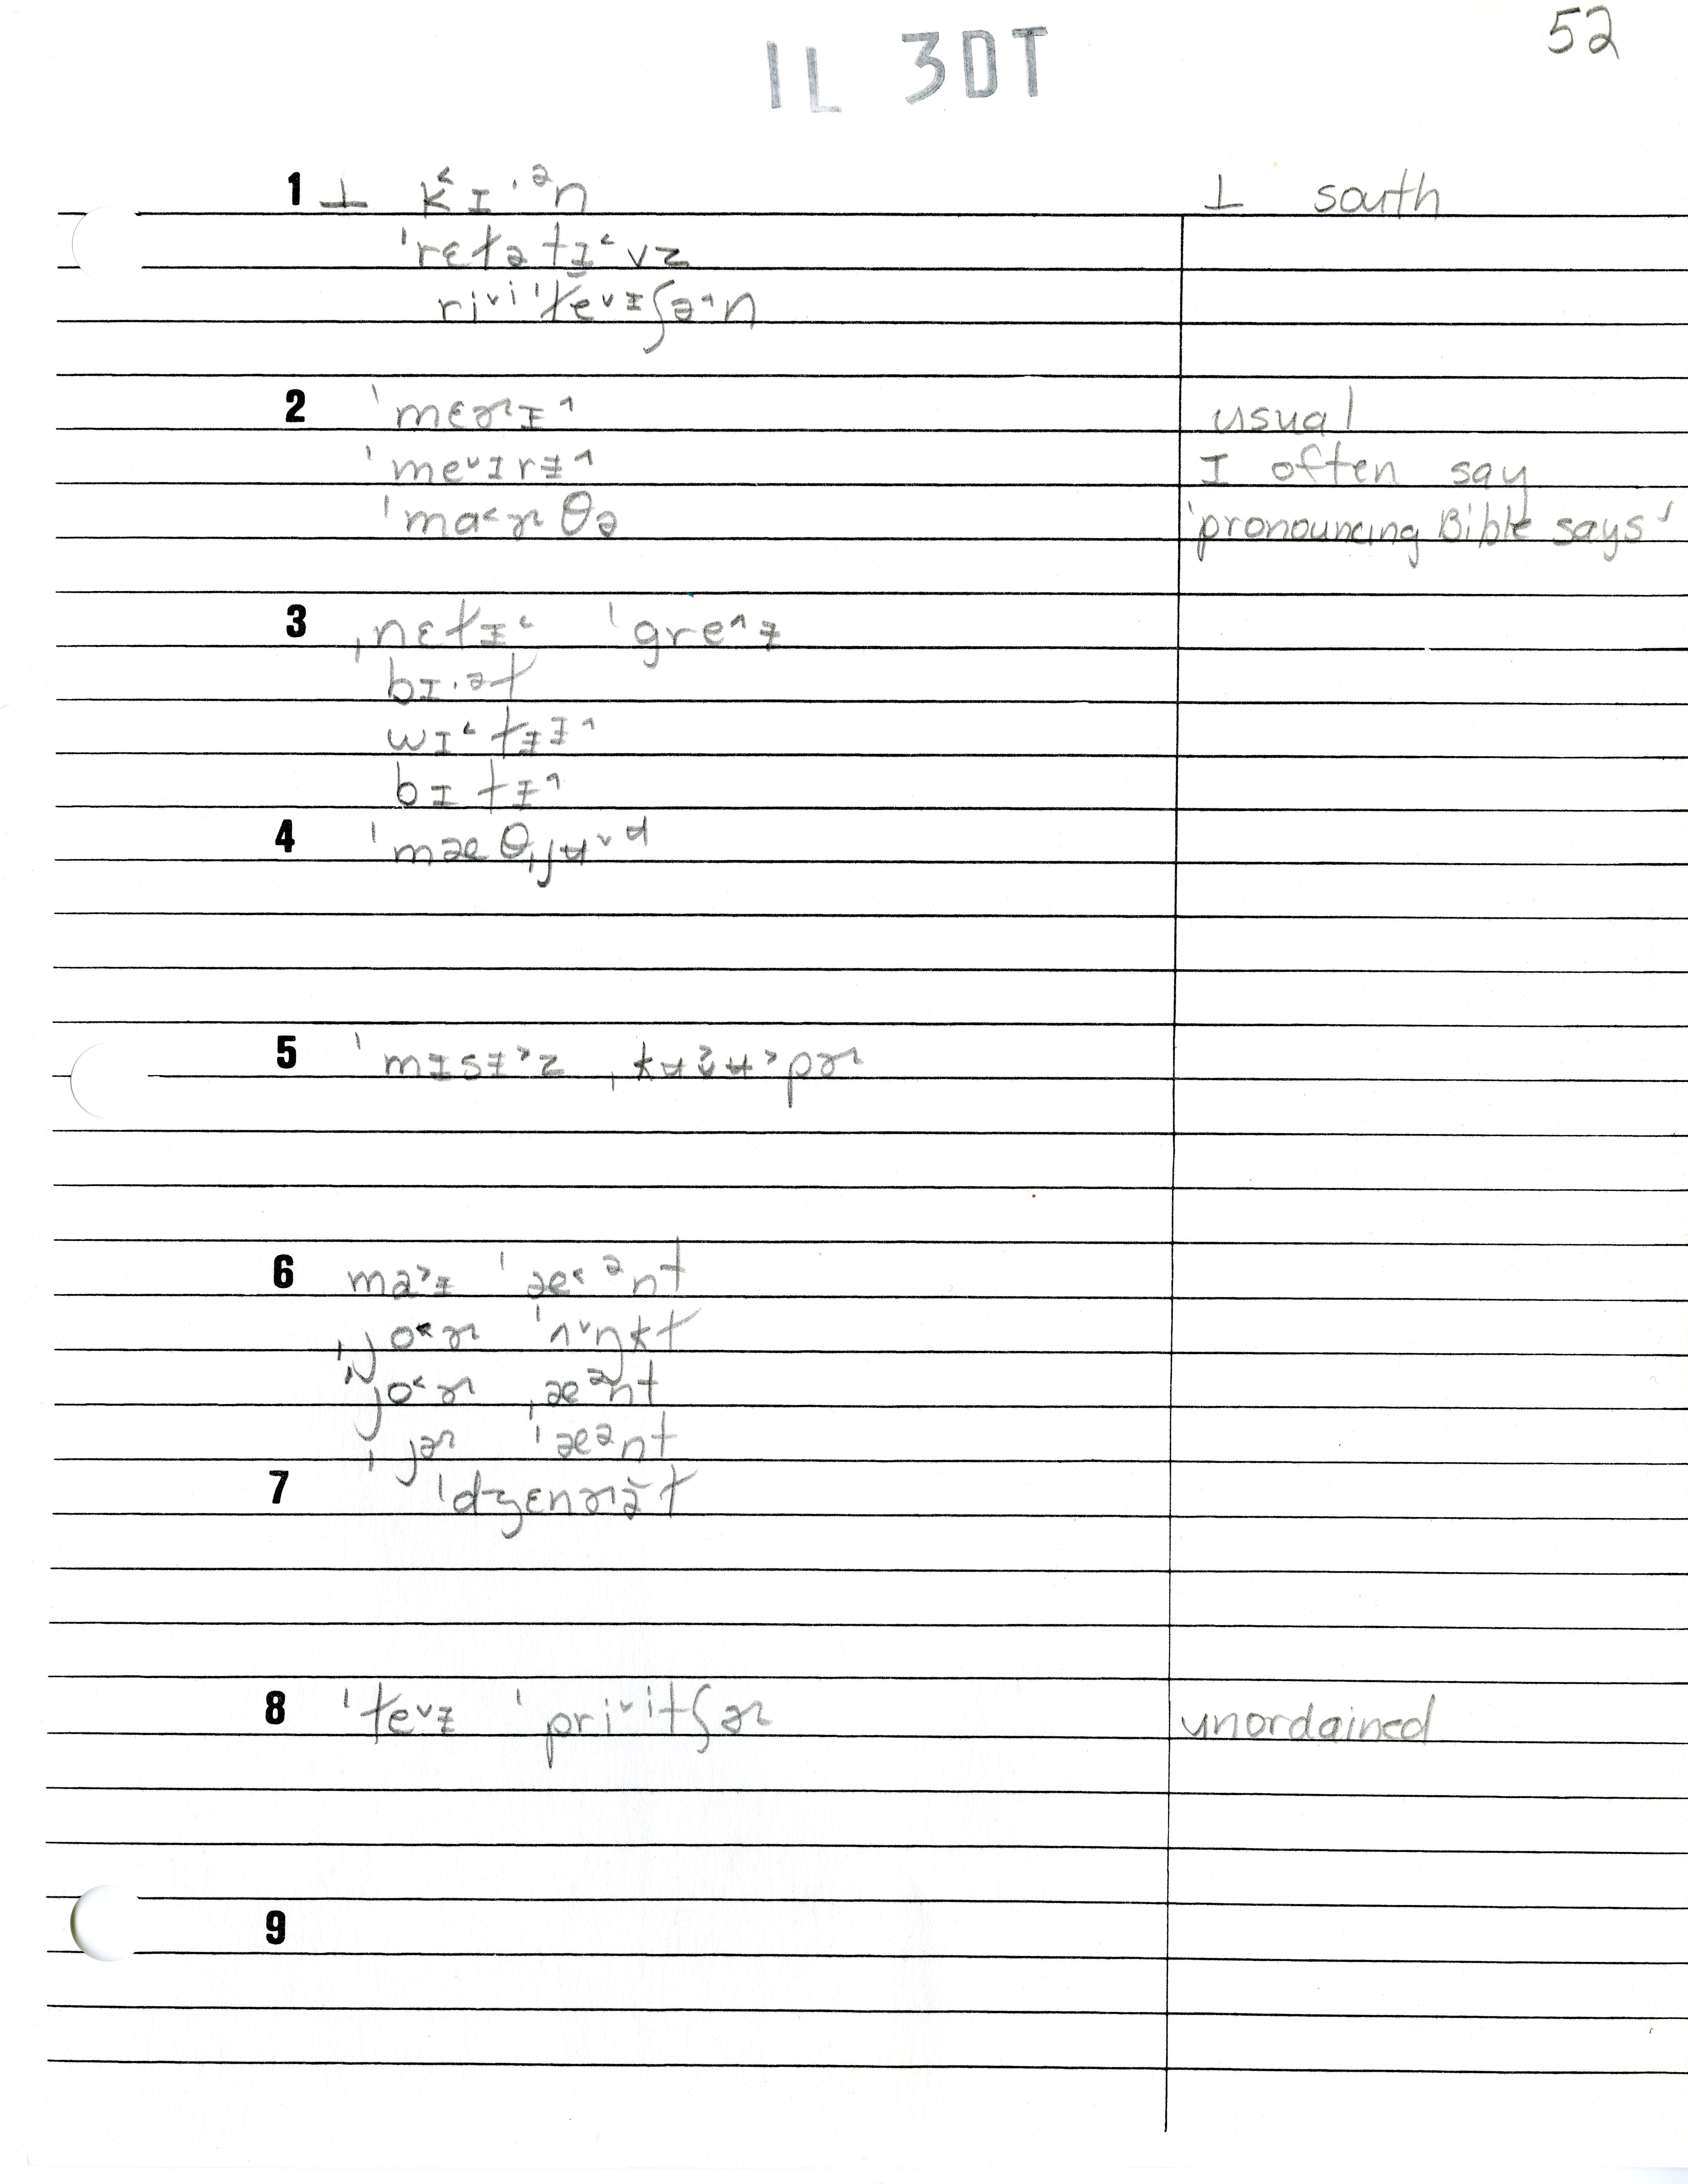 IL 3DT
52
1 ⊥ k˂ɪ·ᵊn ⊥ south
ˈrɛɫətɪ̵˂vz
riᵛiˈɫeᵛɪ̵ʃə˄n
2 ˈmɛɚɪ̵˄ usual
ˈmeᵛɪrɪ̵˄ I often say
ˈma˂ɚθə 'pronouncing Bible says'
3 ˌnɛɫɪ̵˂ ˈgre˄ɪ̵
bɪ·əɫ
wɪ˂ɫɪ̵ɪ̵˄
bɪɫɪ̵˄
4 ˈmæθˌjʉᵛ
5 ˈmɪsɪ̵˃z
6 ma˃ɪ̵ ˈæ˂ᵊnt
ˌjo˂ɚ ˈʌᵛŋkt
jo˂ɚ ˌæᵊnt
ˌjɚ ˈæᵊnt
7 ˈdʒɛnɚə̆ɫ
8 ˈɫeᵛɪ̵ ˈpriᵛitʃɚ unordained
9